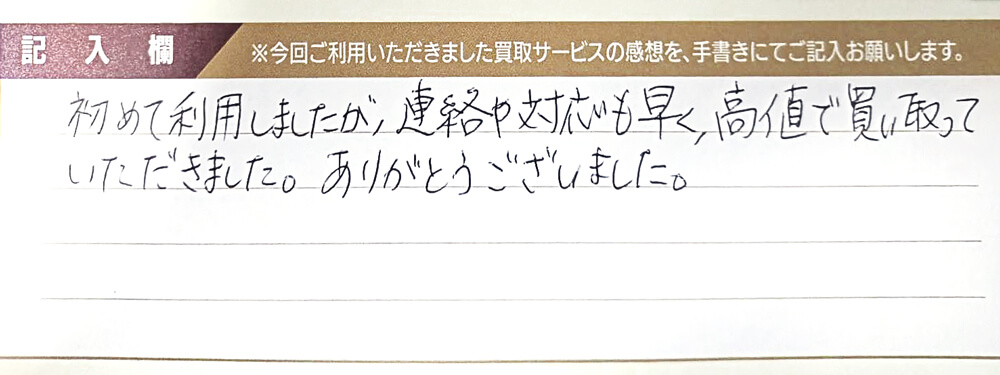 記入欄 ※今回ご利用いただきました買取サービスの感想を、手書きにてご記入お願いします。
初めて利用しましたが、連絡や対応も早く、高値で買い取って
いただきました。ありがとうございました。